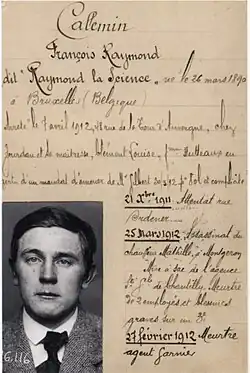 Callemin
François Raymond
dit "Raymond la Science" né le 26 mars 1890
à Bruxelles (Belgique)
arrêté le 7 avril 1912, 48 rue de la Tour d'Auvergne, chez
Jourdan et la maîtresse, Clément Louise, femme
d'un mandat d'amener de Mr Gilbert
21 Xbre 1911 Attentat rue
Ordener
25 mars 1912 Assassinat du
chauffeur Mathillé, à Montgeron
Mise à sac de l'agence
Sté Gle de Chantilly, Meurtre
de 2 employés et blessures
graves sur un 3e
27 février 1912 Meurtre
agent Garnier